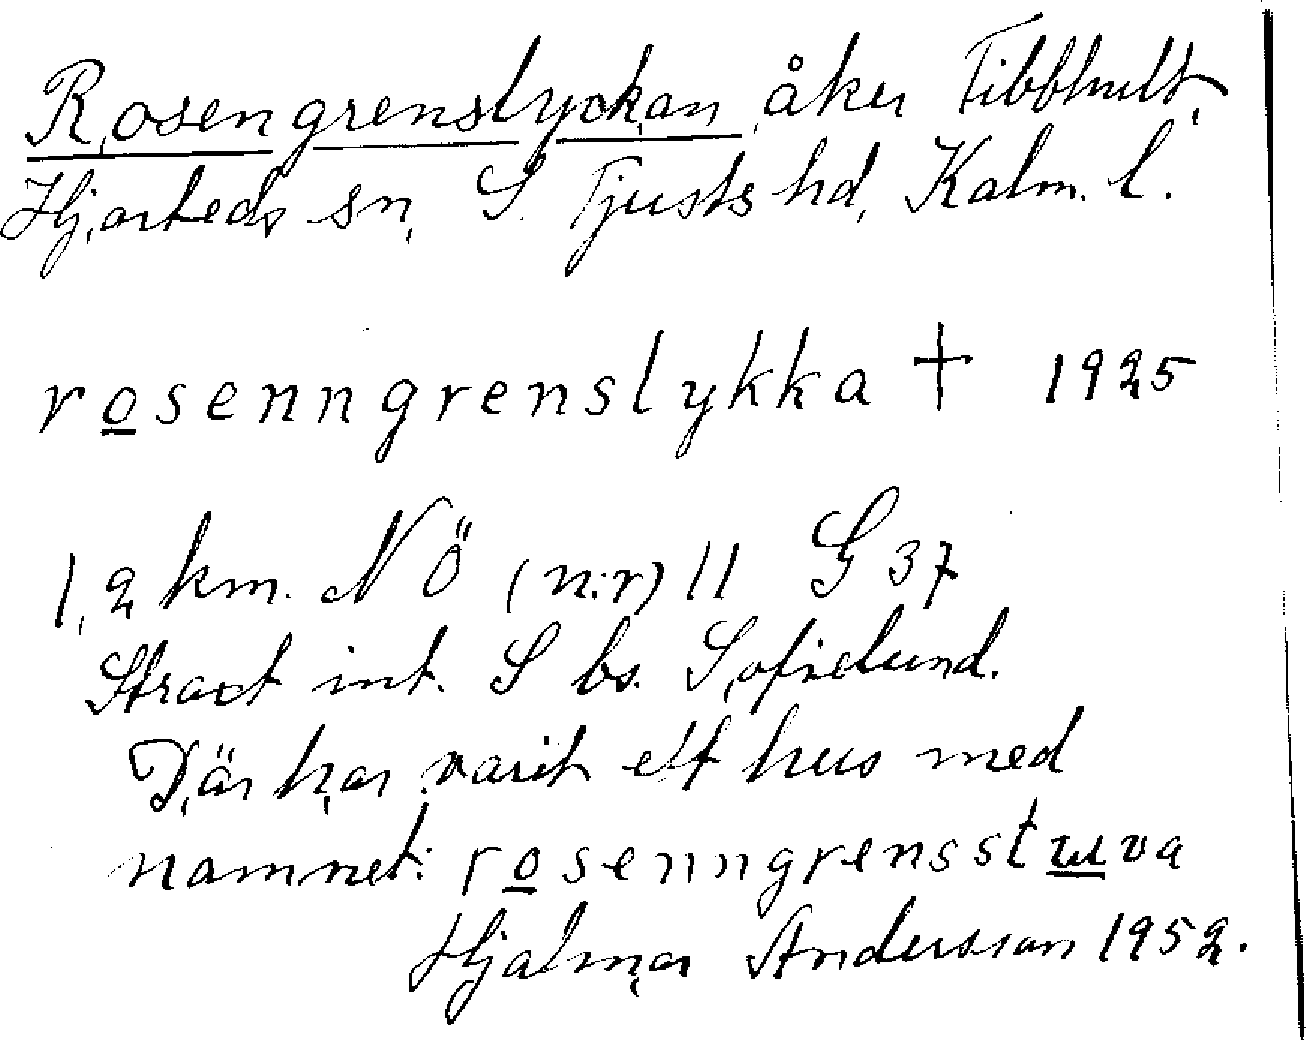 Rosengrenslyckan, åker Tibbhult,
Hjorteds sn, S. Tjusts hd, Kalm. l.
rosenngrenslykka † 1925
1,2 km. NÖ (n:r) 11 G 37
Straxt int. S bs. Sofielund.
Där har varit ett hus med
namnet: rosenngrensstuva
Hjalmar Andersson 1952.